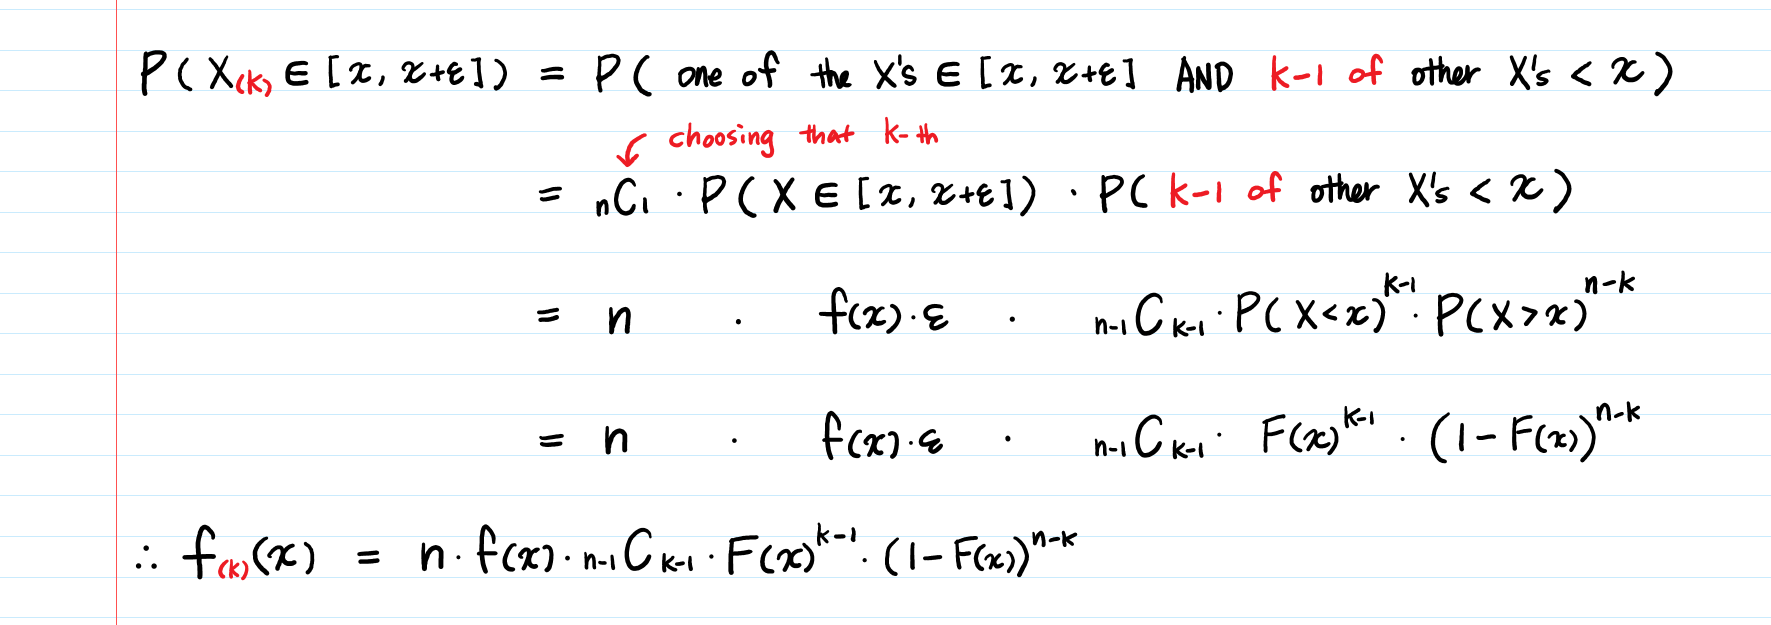 P( X(k) ∈ [x, x+ε] ) = P( one of the X's ∈ [x, x+ε] AND k-1 of other X's < x )
choosing that k-th
= nC1 · P( X ∈ [x, x+ε] ) · P( k-1 of other X's < x )
= n · f(x)·ε · n-1Ck-1 · P( X < x )^k-1 · P( X > x )^n-k
= n · f(x)·ε · n-1Ck-1 · F(x)^k-1 · (1 - F(x))^n-k
∴ f(k)(x) = n · f(x) · n-1Ck-1 · F(x)^k-1 · (1 - F(x))^n-k